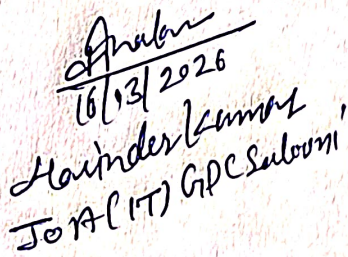 16/03/2026
Harinder Kumar
JOA (IT) GPC Salooni